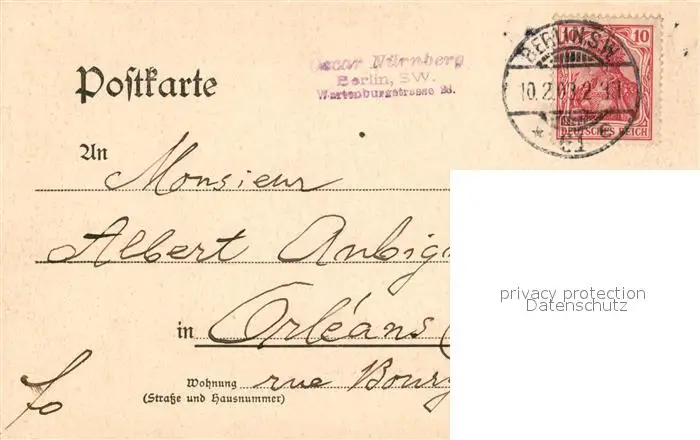 Oscar Nürnberg
Berlin, SW.
Wartenburgstrasse
Postkarte
BERLIN S.W.
10 10
DEUTSCHES REICH
An
Monsieur
Albert Aubig
in Orléans
Wohnung rue Bourg
(Straße und Hausnummer)
privacy protection
Datenschutz